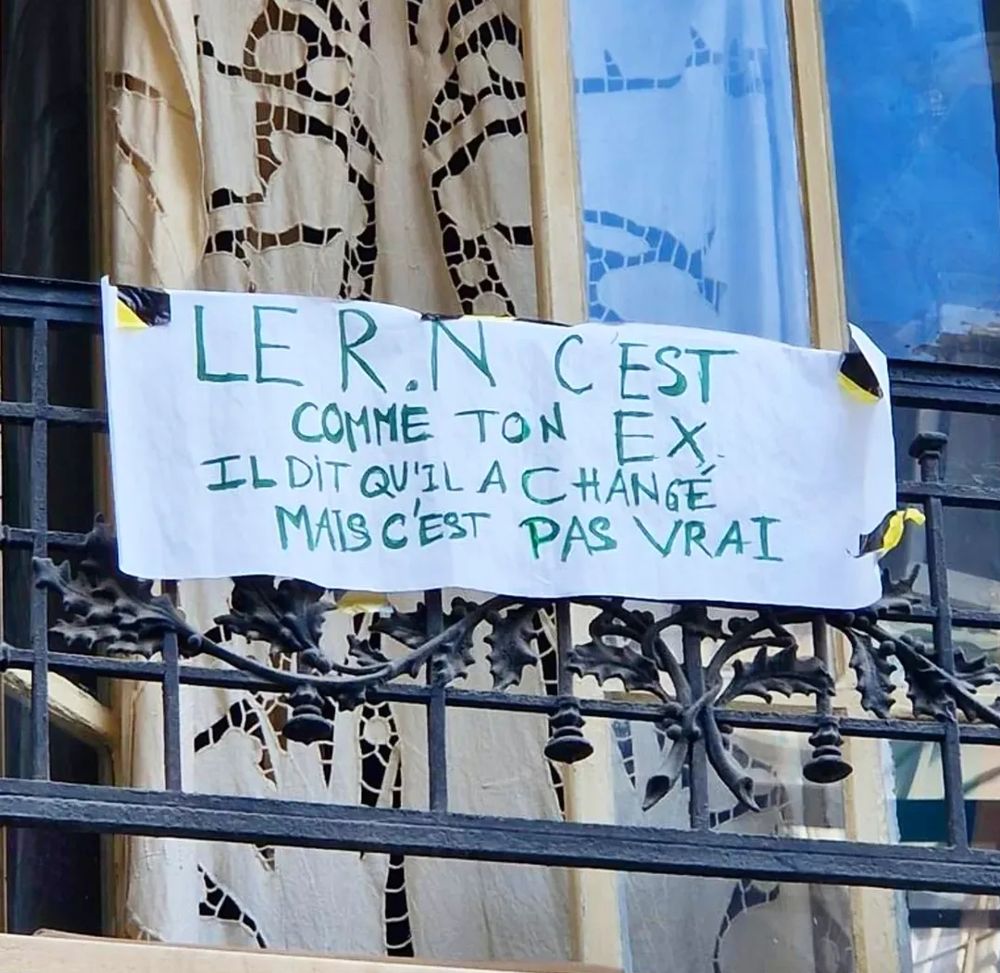 LE R.N C'EST
COMME TON EX.
IL DIT QU'IL A CHANGÉ
MAIS C'EST PAS VRAI